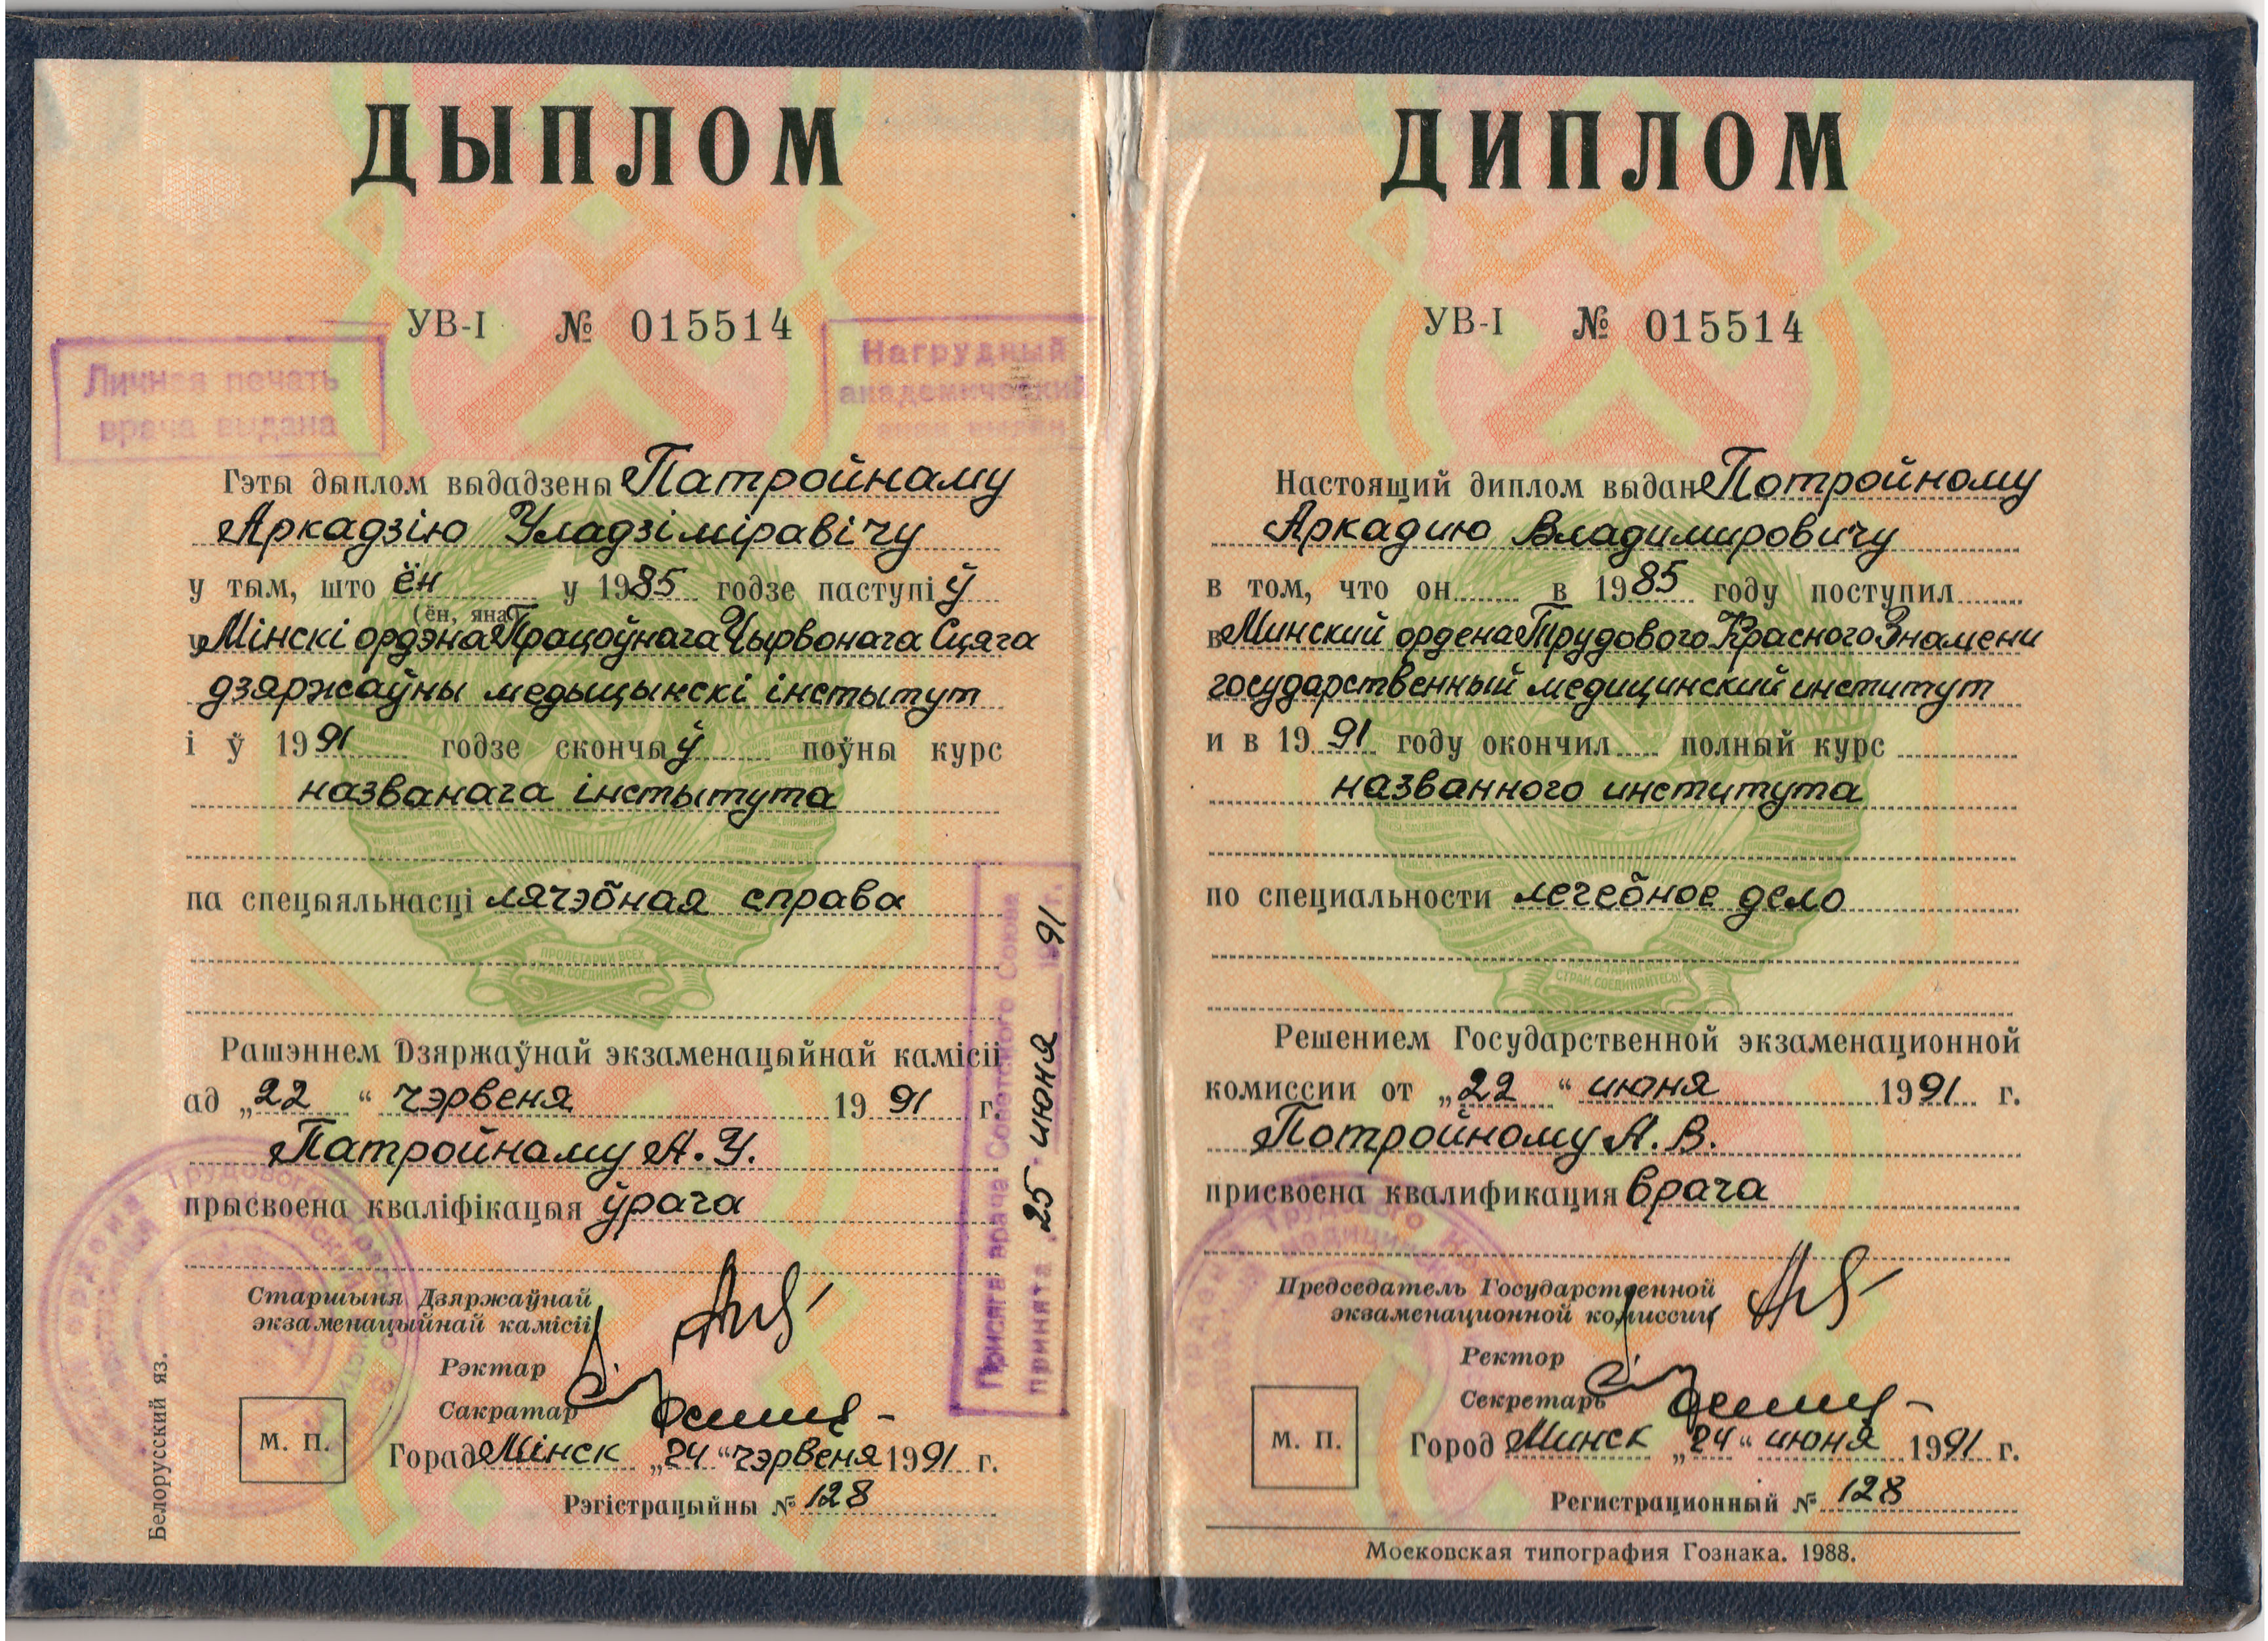 ДЫПЛОМ
УВ-I № 015514
Личная печать
врача выдана
Нагрудный
академический
Гэты дыплом выдадзены Патройнаму
Аркадзію Уладзіміравічу
у тым, што ён у 1985 годзе паступіў
(ён, яна)
у Мінскі ордэна Працоўнага Чырвонага Сцяга
дзяржаўны медыцынскі інстытут
і ў 1991 годзе скончыў поўны курс
названага інстытута
па спецыяльнасці лячэбная справа
ПРОЛЕТАРИИ ВСЕХ
СТРАН, СОЕДИНЯЙТЕСЬ!
Рашэннем Дзяржаўнай экзаменацыйнай камісіі
ад „22“ чэрвеня 1991 г.
Патройнаму А. У.
прысвоена кваліфікацыя ўрача
Старшыня Дзяржаўнай
экзаменацыйнай камісіі
Рэктар
Сакратар
М. П.
Горад Мінск „24“ чэрвеня 1991 г.
Рэгістрацыйны № 128
Белорусский яз.
Присяга врача Советского Союза
принята „25“ июня 1991 г.
ДИПЛОМ
УВ-I № 015514
Настоящий диплом выдан Потройному
Аркадию Владимировичу
в том, что он в 1985 году поступил
в Минский ордена Трудового Красного Знамени
государственный медицинский институт
и в 1991 году окончил полный курс
названного института
по специальности лечебное дело
ПРОЛЕТАРИИ ВСЕХ
СТРАН, СОЕДИНЯЙТЕСЬ!
Решением Государственной экзаменационной
комиссии от „22“ июня 1991 г.
Потройному А. В.
присвоена квалификация врача
Председатель Государственной
экзаменационной комиссии
Ректор
Секретарь
М. П.
Город Минск „24“ июня 1991 г.
Регистрационный № 128
Московская типография Гознака. 1988.